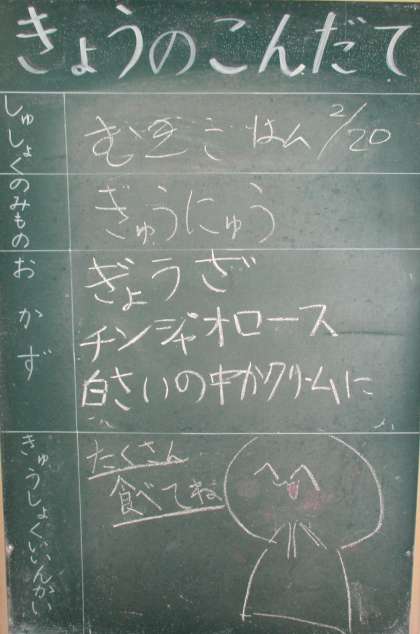 きょうのこんだて
しゅしょく
むぎごはん 2/20
のみもの
ぎゅうにゅう
おかず
ぎょうざ
チンジャオロース
白さいの中かクリームに
きゅうしょくいいんかい
たくさん
食べてね